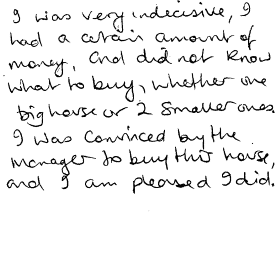 I was very indecisive, I
had a certain amount of
money, and did not know
what to buy, whether one
big house or 2 smaller ones
I was convinced by the
manager to buy this house,
and I am pleased I did.